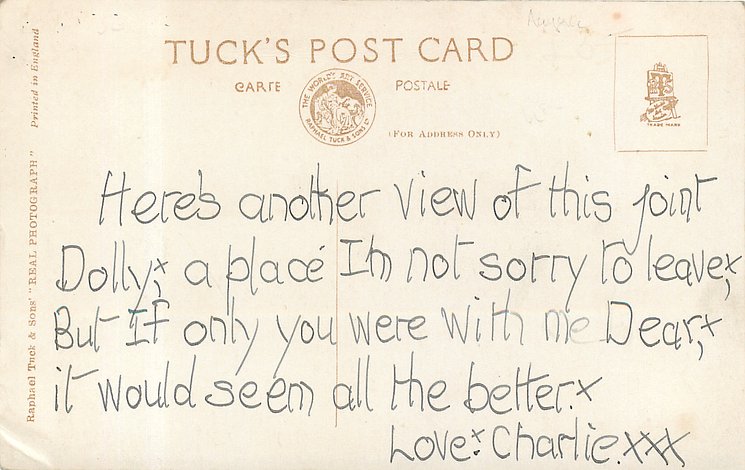 TUCK'S POST CARD
CARTE POSTALE
THE WORLD'S ART SERVICE
RAPHAEL TUCK & SONS LD
(FOR ADDRESS ONLY)
TRADE MARK
Raphael Tuck & Sons' "REAL PHOTOGRAPH" Printed in England
Here's another view of this joint
Dolly,x a place I'm not sorry to leave,x
But If only you were with me Dear,x
it would seem all the better.x
Love.x Charlie.xxx